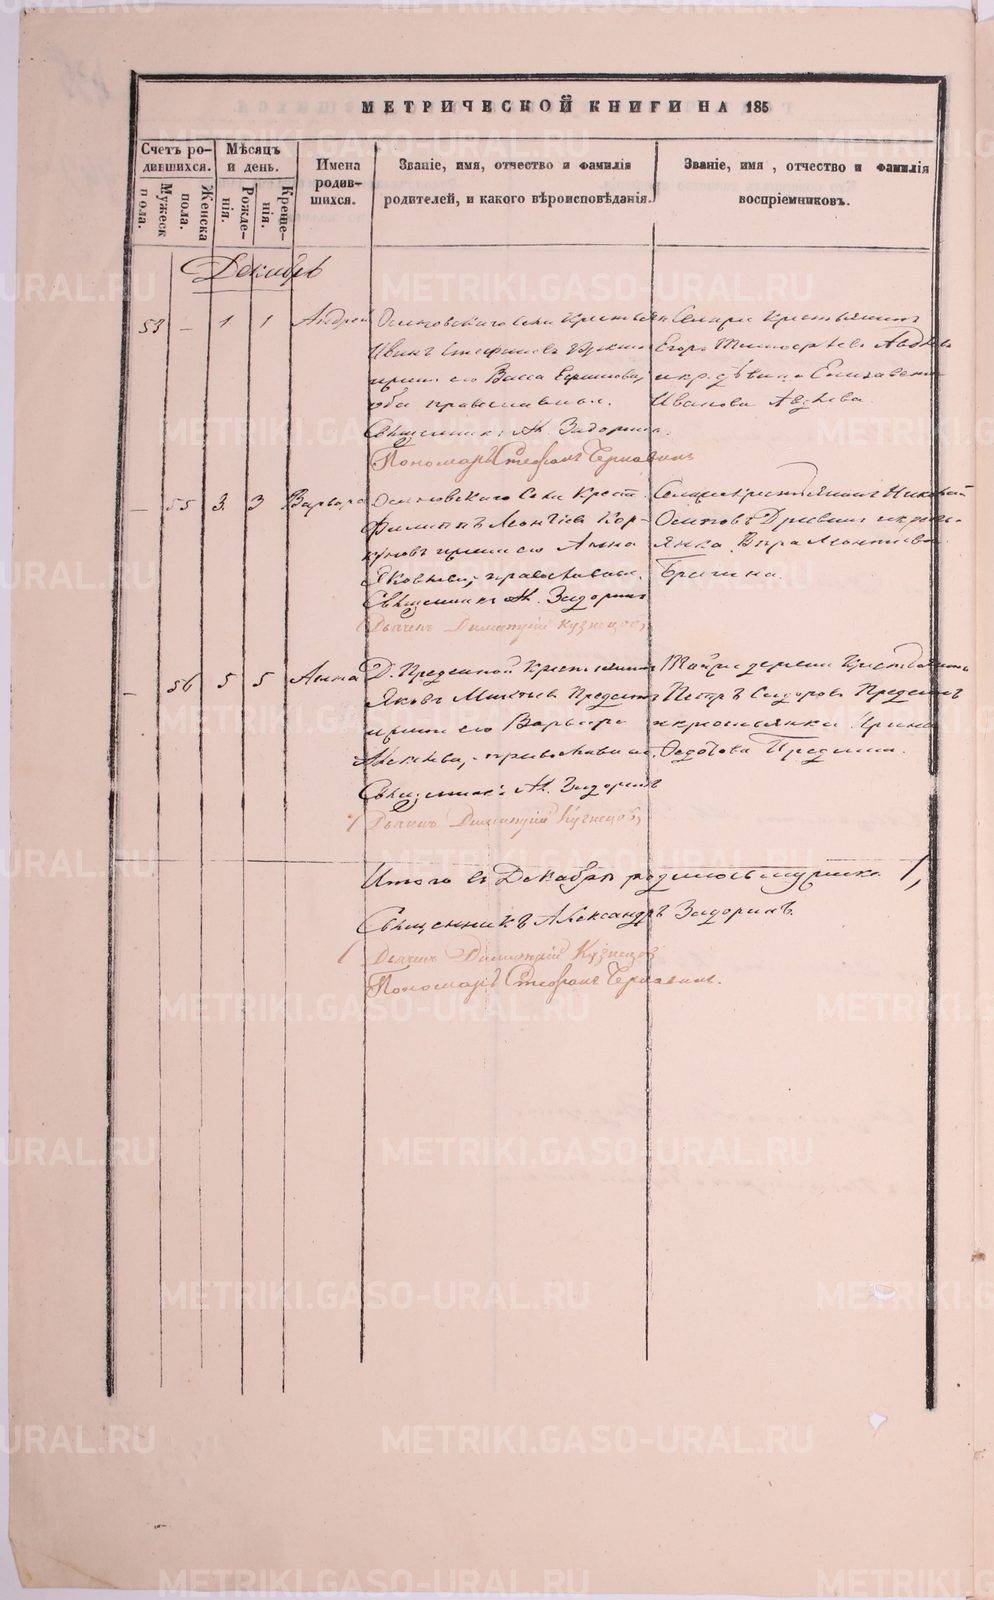 МЕТРИЧЕСКОЙ КНИГИ НА 185
Счетъ ро-
дившихся.
Мужеск
пола.
Женска
пола.
Мѣсяцъ
и день.
Рожде-
нія.
Креще-
нія.
Имена
родив-
шихся.
Званіе, имя, отчество и фамилія
родителей, и какого вѣроисповѣданія.
Званіе, имя, отчество и фамилія
воспріемниковъ.
Декабрь
53 — 1 1 Андрей
Осиновскаго села крестьян
Иванъ Стефановъ
жена его Васса
оба православные.
Священникъ А. Задоринъ.
Пономарь Стефанъ Чернавинъ
Селаря крестьянинъ
Егоръ Тимофеевъ Авдѣевъ
и кр. дѣвица Елизавета
Иванова Авдѣева.
— 55 3 3 Варвара
Осиновскаго Села Крест.
Филиппъ Леонтіев Кор-
куновъ жена его Анна
Яковлева, православные.
Священникъ А. Задоринъ
Дьячекъ Димитрій Кузнецовъ
крестьянинъ Николай
Осиповъ и кресть-
янка Вѣра Леонтіева
Брагина.
— 56 5 5 Анна
Д. Прединой Крестьянинъ
Яковъ Предеинъ
жена его Варвара
православные.
Священникъ А. Задоринъ
Дьячекъ Димитрій Кузнецовъ
Той же деревни Крестьянинъ
Петръ Сидоровъ Предеинъ
и крестьянка Ирина
Федотова Предеина.
Итого въ Декабрѣ родилось мужска 1,
Священникъ Александръ Задоринъ.
Дьячекъ Димитрій Кузнецовъ
Пономарь Стефанъ Чернавинъ.
METRIKI.GASO-URAL.RU